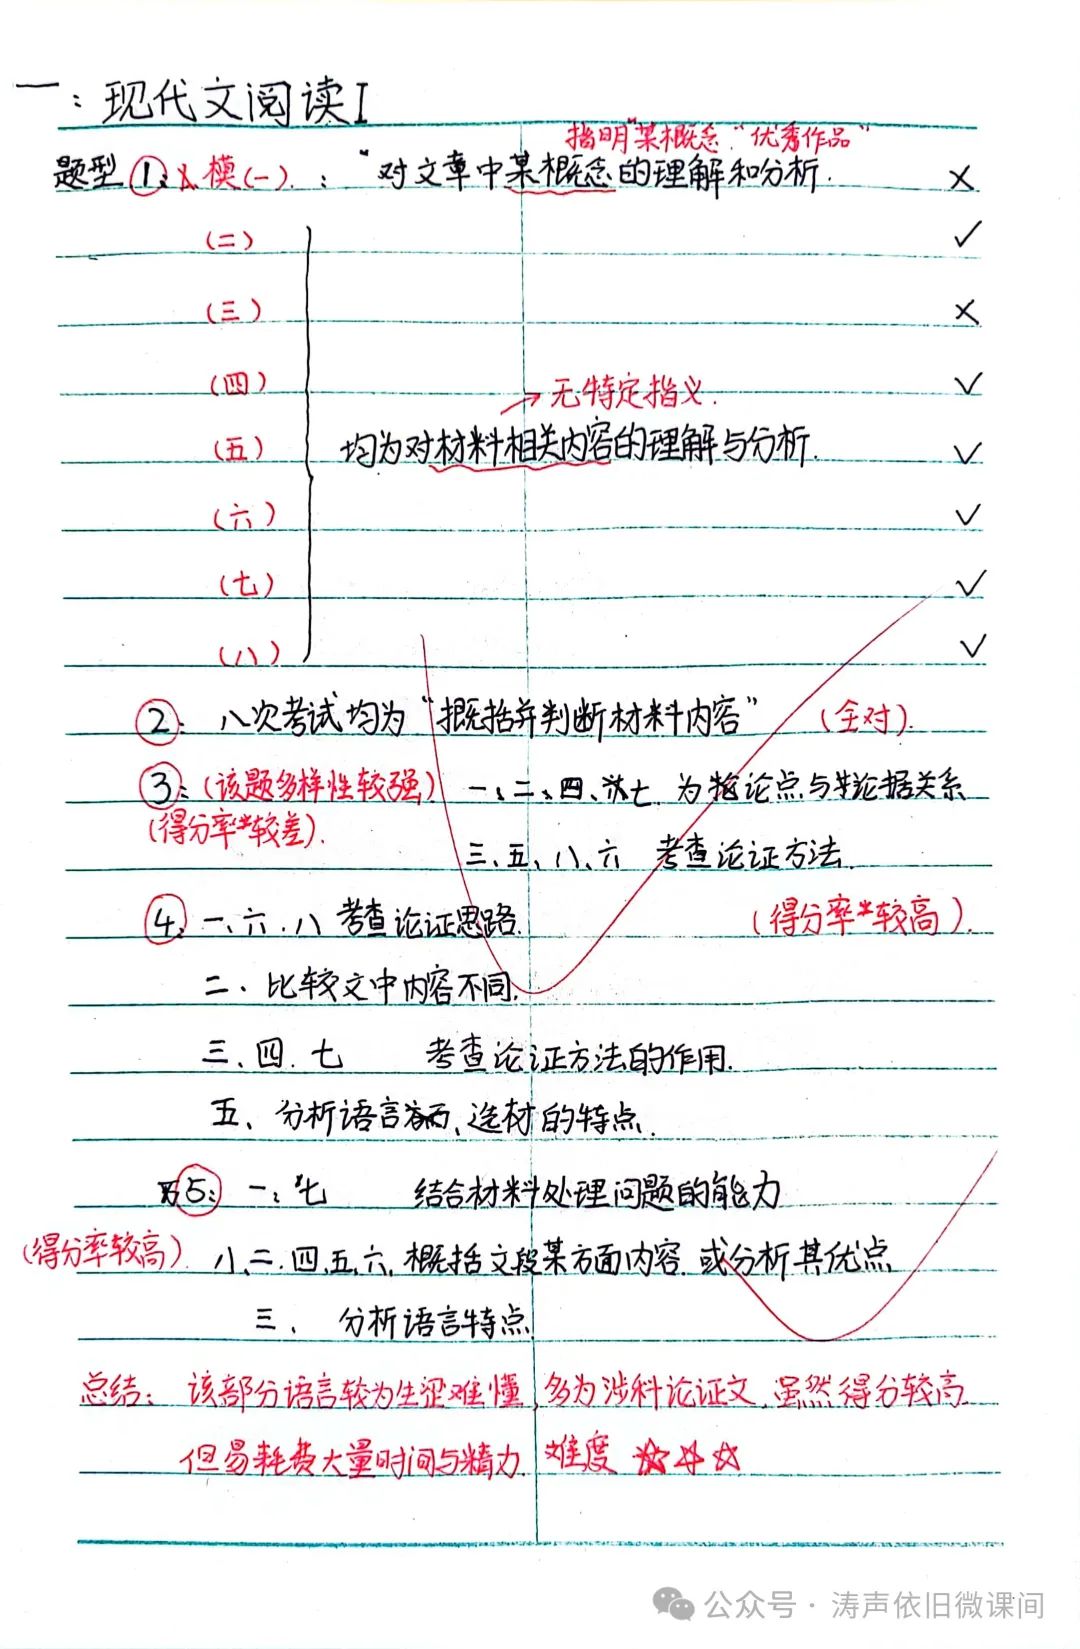 一：现代文阅读I
指明"某概念"."优秀作品"
题型①：模(一)：“对文章中某概念的理解和分析. ×
(二) ✓
(三) ×
(四) ✓
→无特定指义.
(五) 均为对材料相关内容的理解与分析. ✓
(六) ✓
(七) ✓
(八) ✓
②：八次考试均为“概括并判断材料内容” (全对).
③：(该题多样性较强) 一、二、四、七 为论点与论据关系
(得分率较差).
三、五、八、六 考查论证方法.
④：一、六.八 考查论证思路. (得分率较高).
二、比较文中内容不同.
三、四.七 考查论证方法的作用.
五、分析语言、选材的特点.
⑤：一：七 结合材料处理问题的能力
(得分率较高) 八、二.四、五、六、概括文段某方面内容.或分析其优点
三、分析语言特点.
总结：该部分语言较为生涩难懂，多为涉科论证文.虽然得分较高.
但易耗费大量时间与精力.难度☆☆☆
公众号·涛声依旧微课间